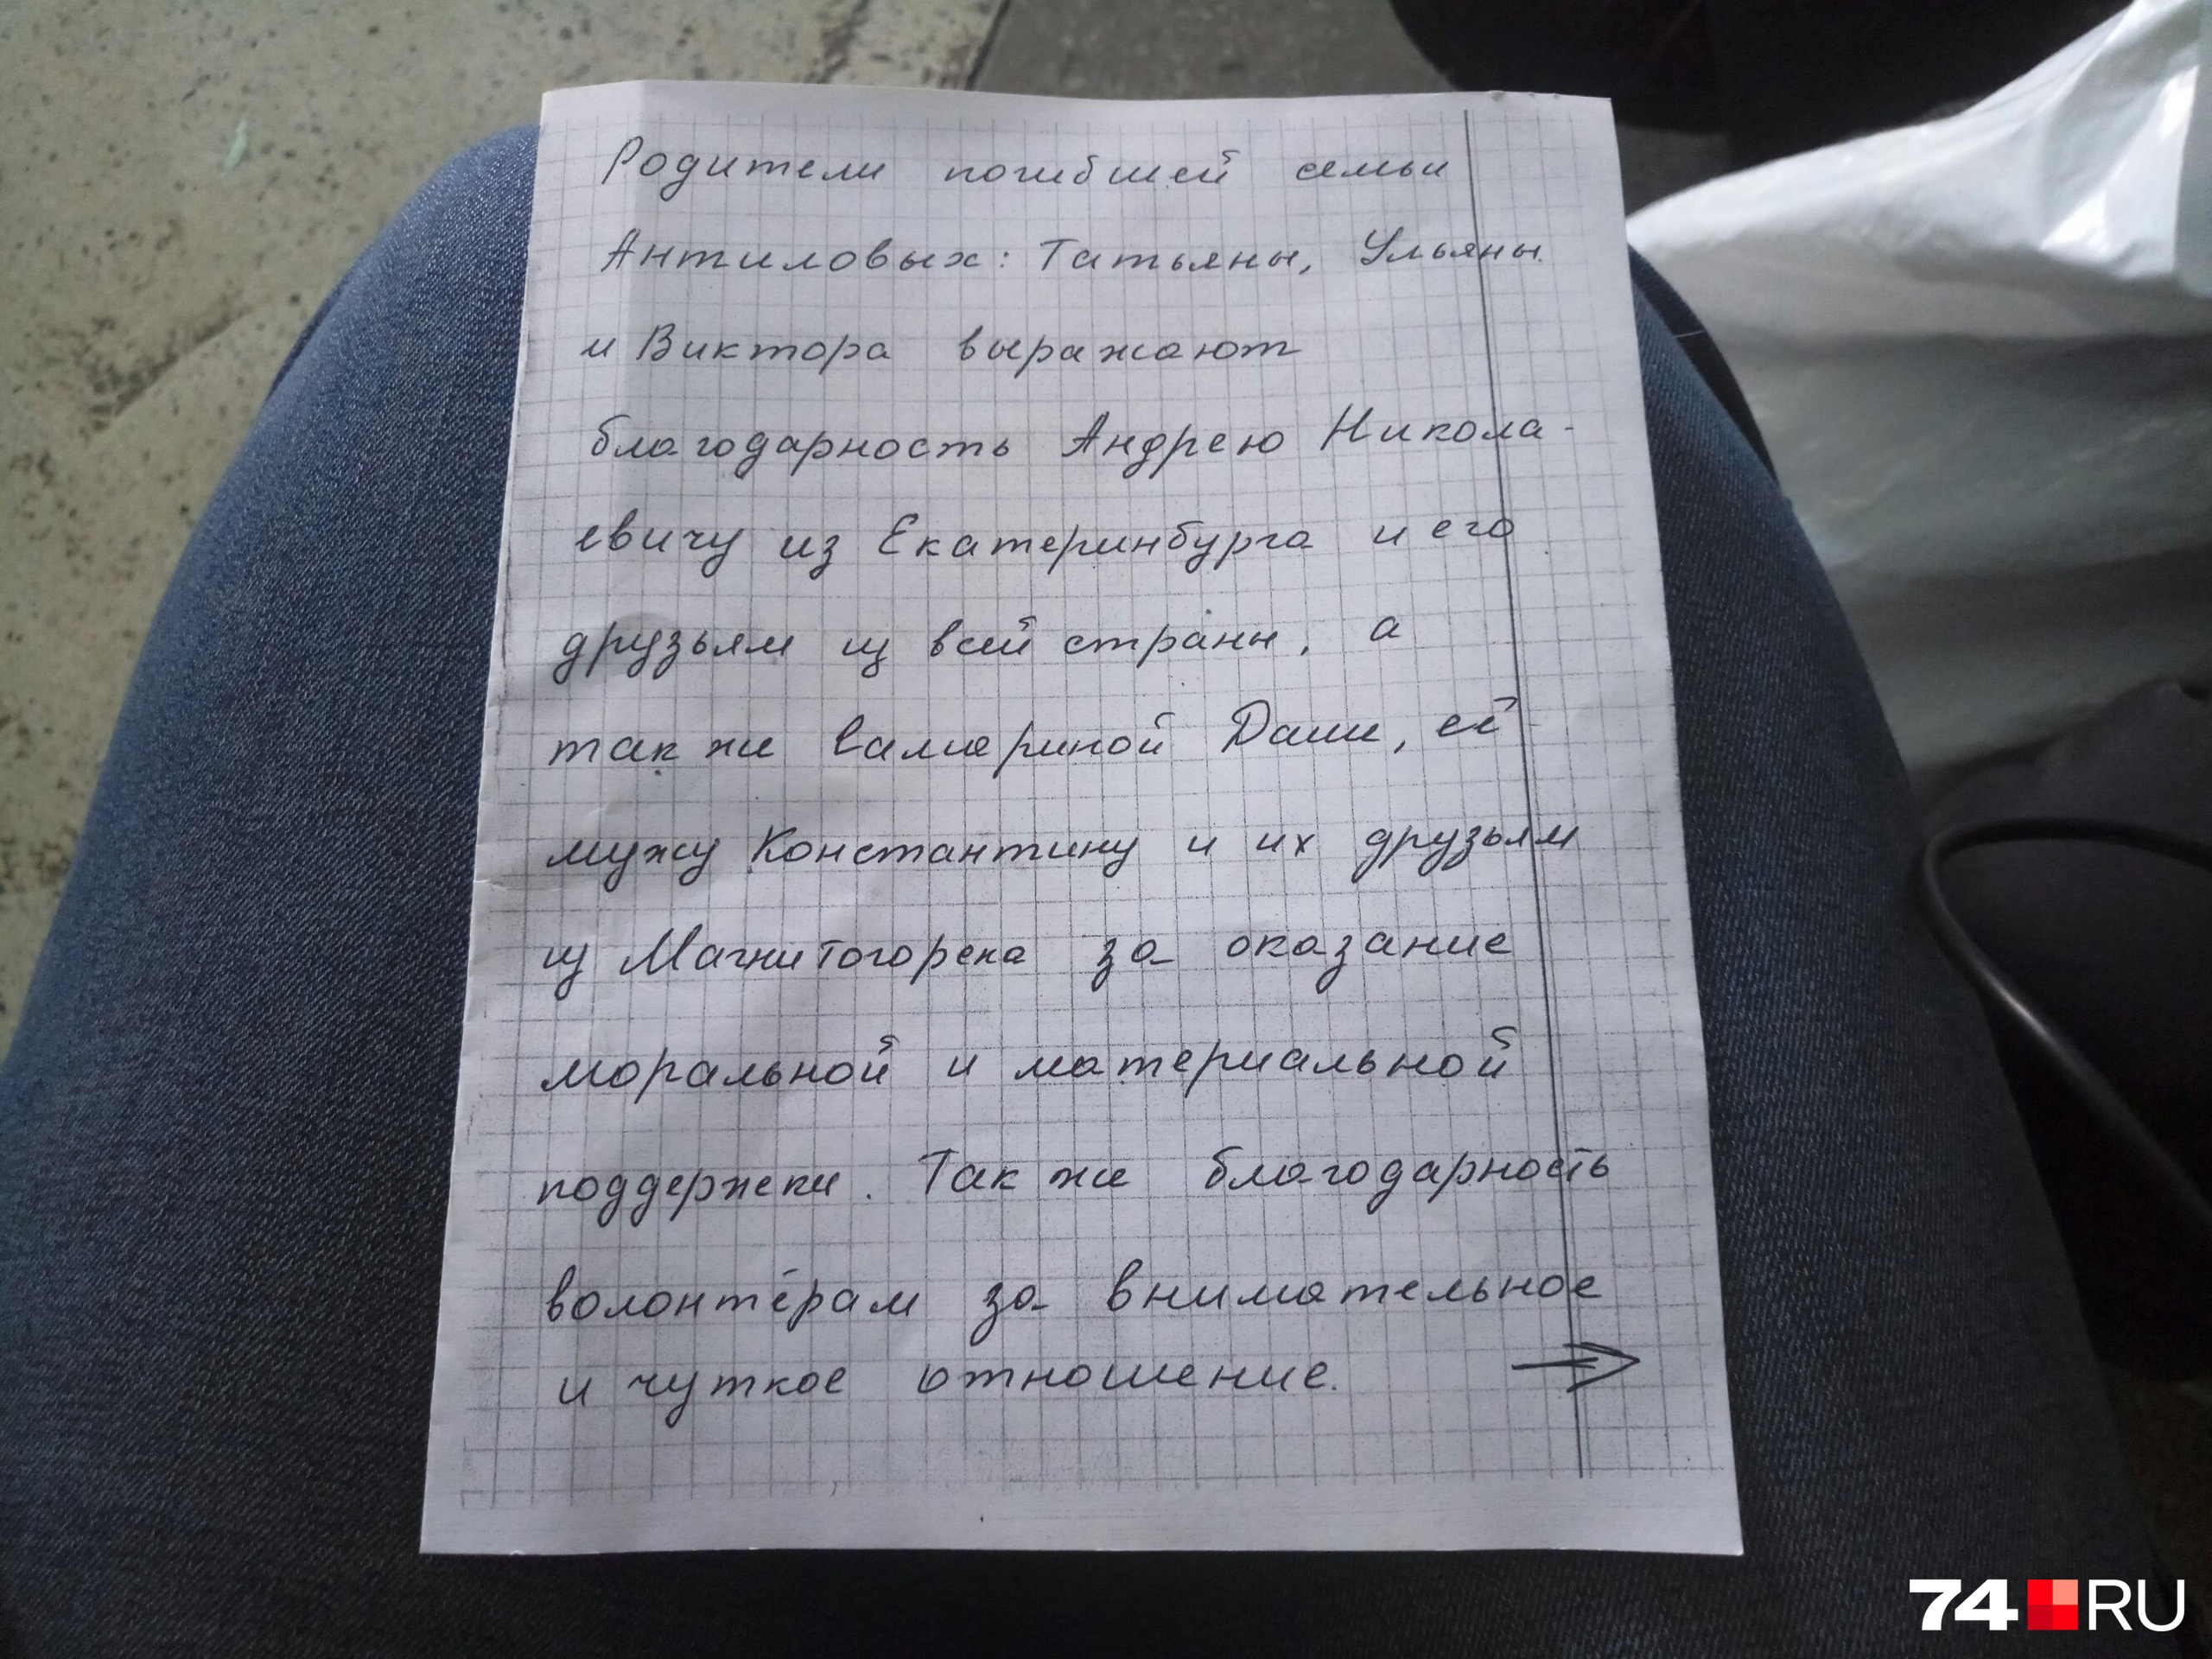 Родители погибшей семьи
Антиповых: Татьяны, Ульяны
и Виктора выражают
благодарность Андрею Никола-
евичу из Екатеринбурга и его
друзьям из всей страны, а
так же Даши, её
мужу Константину и их друзьям
из Магнитогорска за оказание
моральной и материальной
поддержки. Так же благодарность
волонтёрам за внимательное
и чуткое отношение. →
74 RU